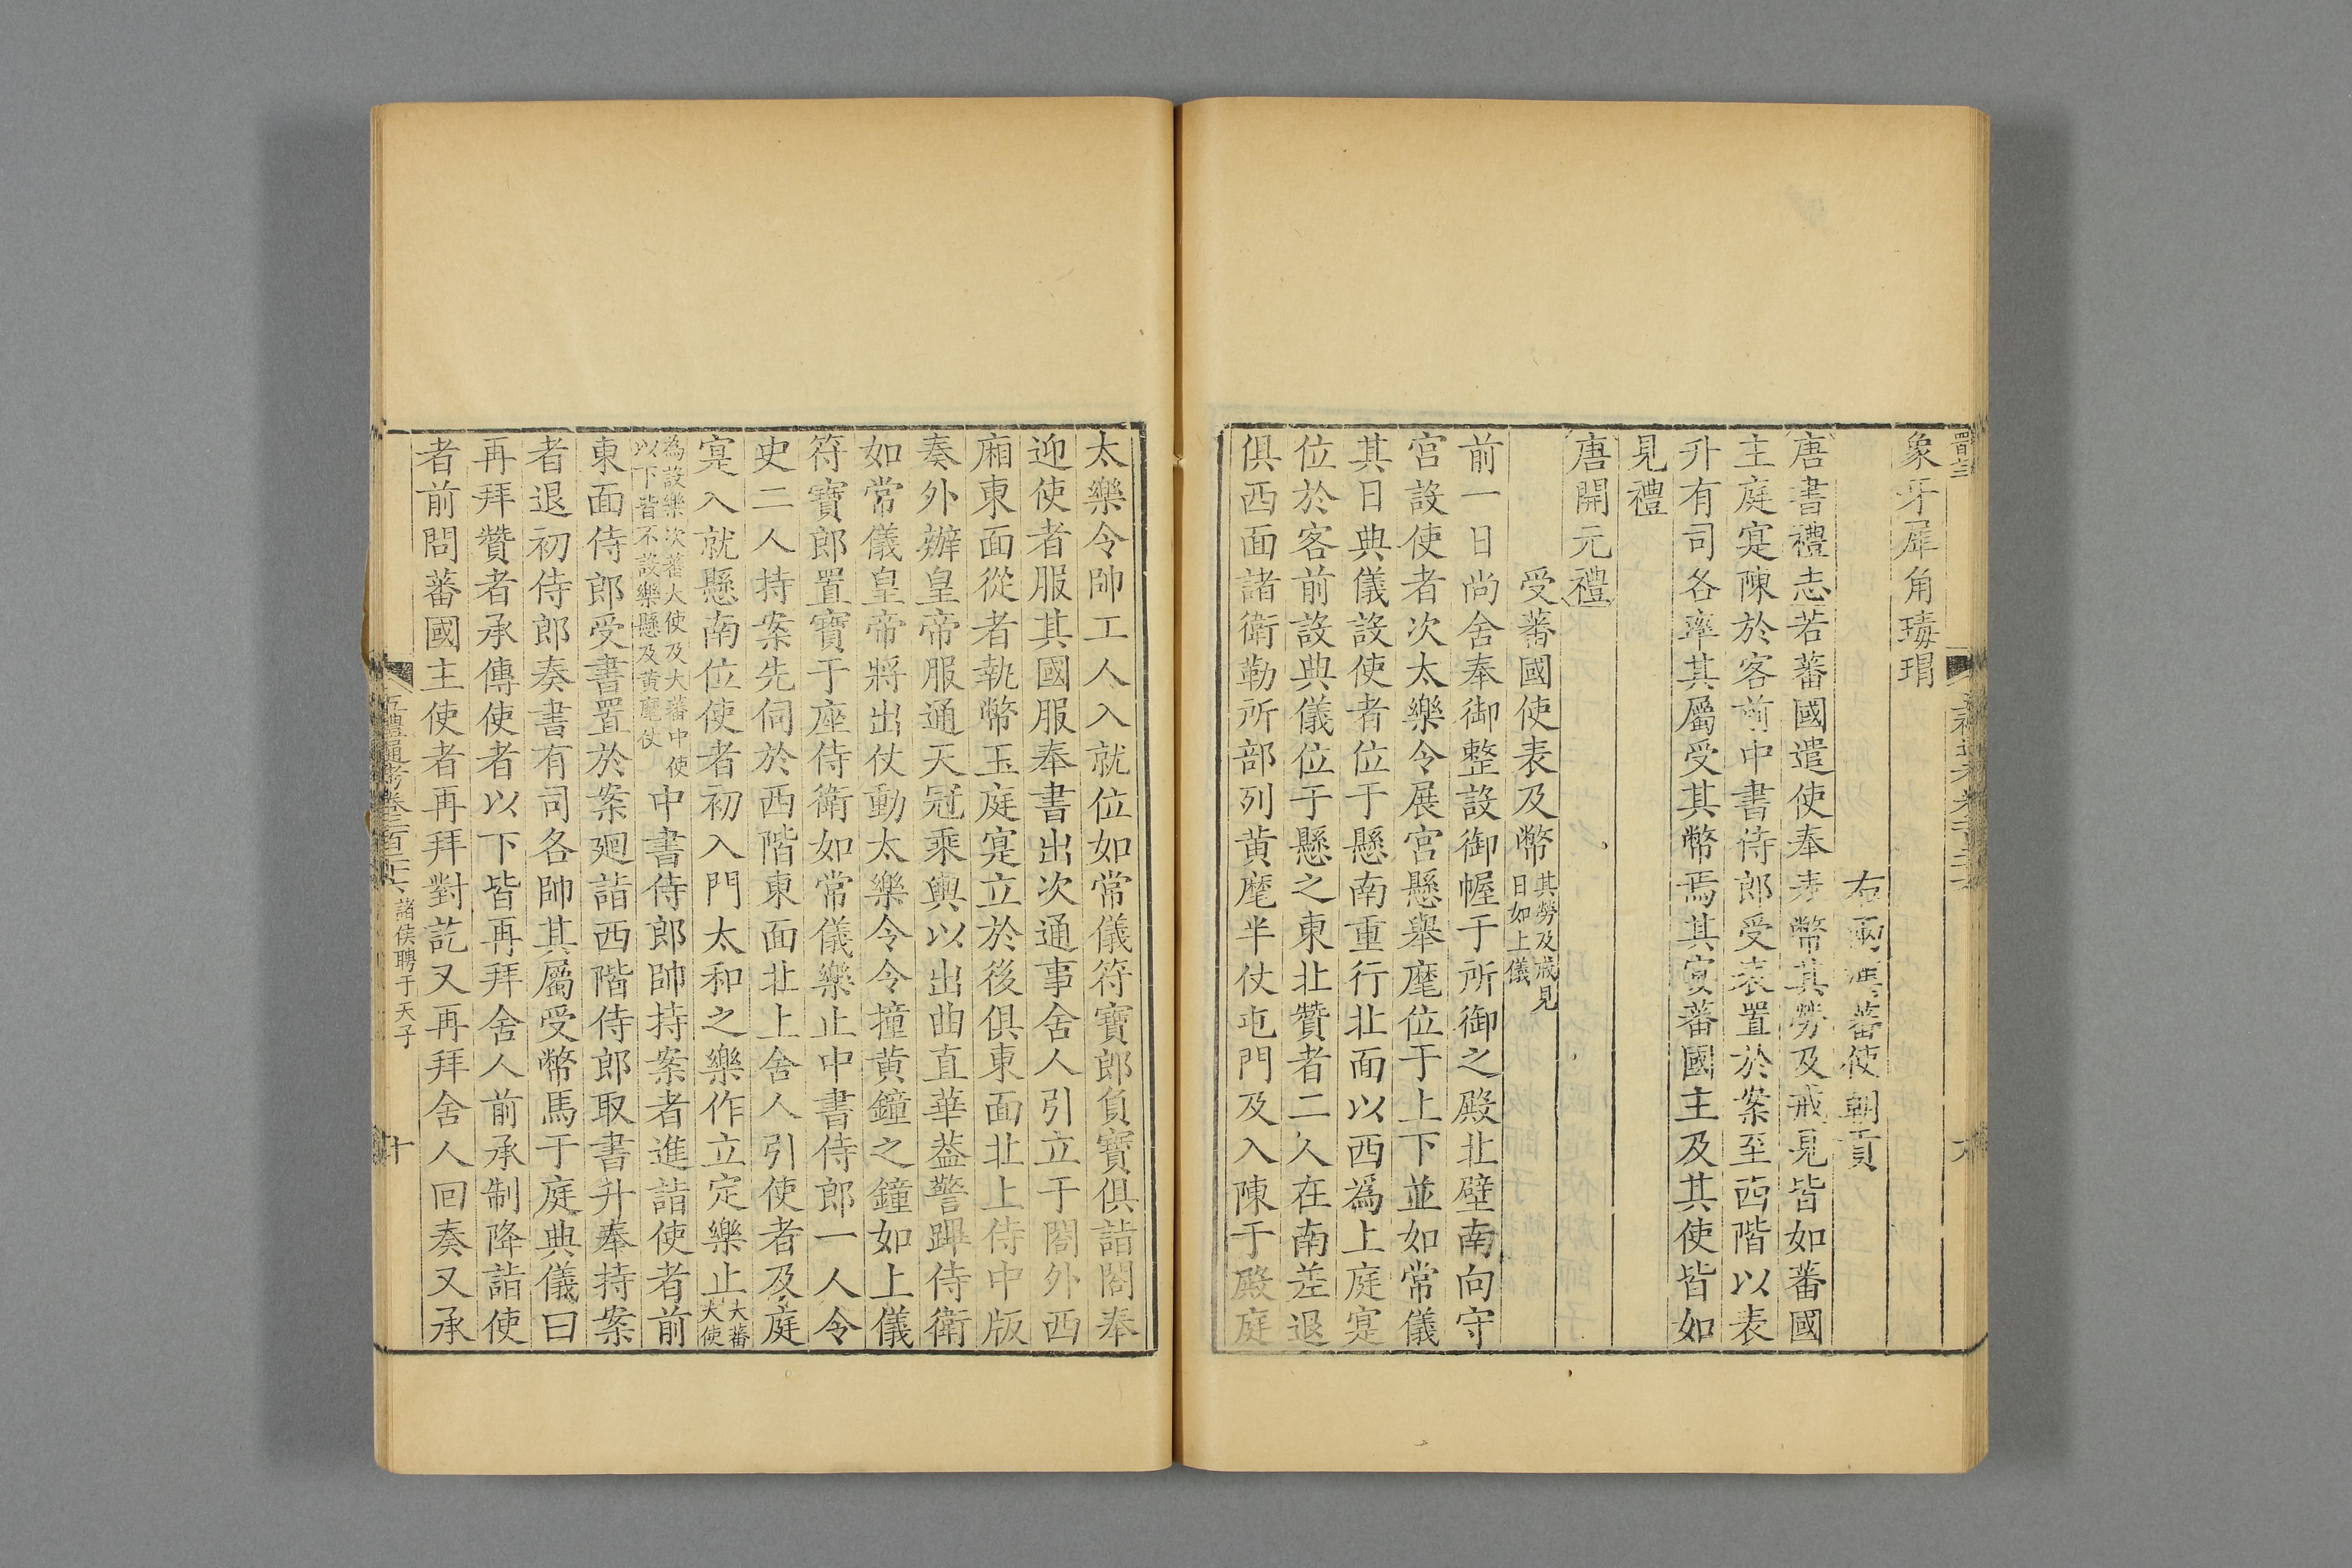 象牙犀角瑇瑁
右兩漢蕃使朝貢
唐書禮志若蕃國遣使奉表幣其勞及戒見皆如蕃國
主庭寔陳於客前中書侍郎受表置於案至西階以表
升有司各率其屬受其幣焉其宴蕃國主及其使皆如
見禮
唐開元禮
受蕃國使表及幣其勞及戒見日如上儀
前一日尚舍奉御整設御幄于所御之殿北壁南向守
宮設使者次太樂令展宮懸舉麾位于上下並如常儀
其日典儀設使者位于懸南重行北面以西爲上庭寔
位於客前設典儀位于懸之東北贊者二人在南差退
俱西面諸衛勒所部列黃麾半仗屯門及入陳于殿庭
太樂令帥工人入就位如常儀符寶郎負寶俱詣閤奉
迎使者服其國服奉書出次通事舍人引立于閤外西
廂東面從者執幣玉庭寔立於後俱東面北上侍中版
奏外辦皇帝服通天冠乘輿以出曲直華蓋警蹕侍衛
如常儀皇帝將出仗動太樂令令撞黃鐘之鐘如上儀
符寶郎置寶于座侍衛如常儀樂止中書侍郎一人令
史二人持案先伺於西階東面北上舍人引使者及庭
寔入就懸南位使者初入門太和之樂作立定樂止大蕃大使
為設樂次蕃大使及大蕃中使以下皆不設樂懸及黃麾仗中書侍郎帥持案者進詣使者前
東面侍郎受書置於案廻詣西階侍郎取書升奉持案
者退初侍郎奏書有司各帥其屬受幣馬于庭典儀曰
再拜贊者承傳使者以下皆再拜舍人前承制降詣使
者前問蕃國主使者再拜對訖又再拜舍人回奏又承
五禮通考卷二百二十六 諸侯聘于天子
十